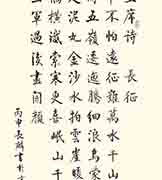 主席詩 長征
軍不怕遠征難萬水千山
閒五嶺逶迤騰細浪烏蒙
走泥丸金沙水拍雲崖暖
橋橫鐵索寒更喜岷山千
三軍過後盡開顏
丙申長麟書於